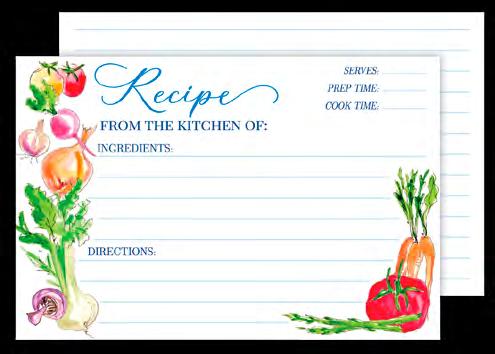 Recipe
SERVES:
PREP TIME:
COOK TIME:
FROM THE KITCHEN OF:
INGREDIENTS:
DIRECTIONS: